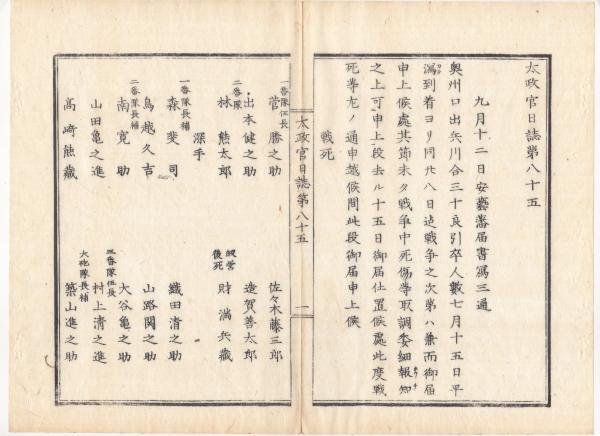 太政官日誌第八十五
九月十二日安藝藩届書寫三通
奥州口出兵川合三十良引卒人數七月十五日平
潟到着ヨリ同廿八日迠戦争之次第ハ兼而御届
申上候處其節未タ戦争中死傷等取調委細報知
之上可申上段去ル十五日御届仕置候處此度戦
死等左ノ通申越候間此段御届申上候
戦死
太政官日誌第八十五
一
一番隊伍長
菅勝之助
佐々木藤三郎
出本健之助
造賀善太郎
二番隊
林熊太郎
後死
財満兵蔵
深手
一番隊長補
森斐司
織田清之助
鳥越久吉
山路関之助
二番隊長補
南寛助
大谷亀之助
山田亀之進
三番隊伍長
村上清之進
高崎熊蔵
大砲隊長補
築山進之助